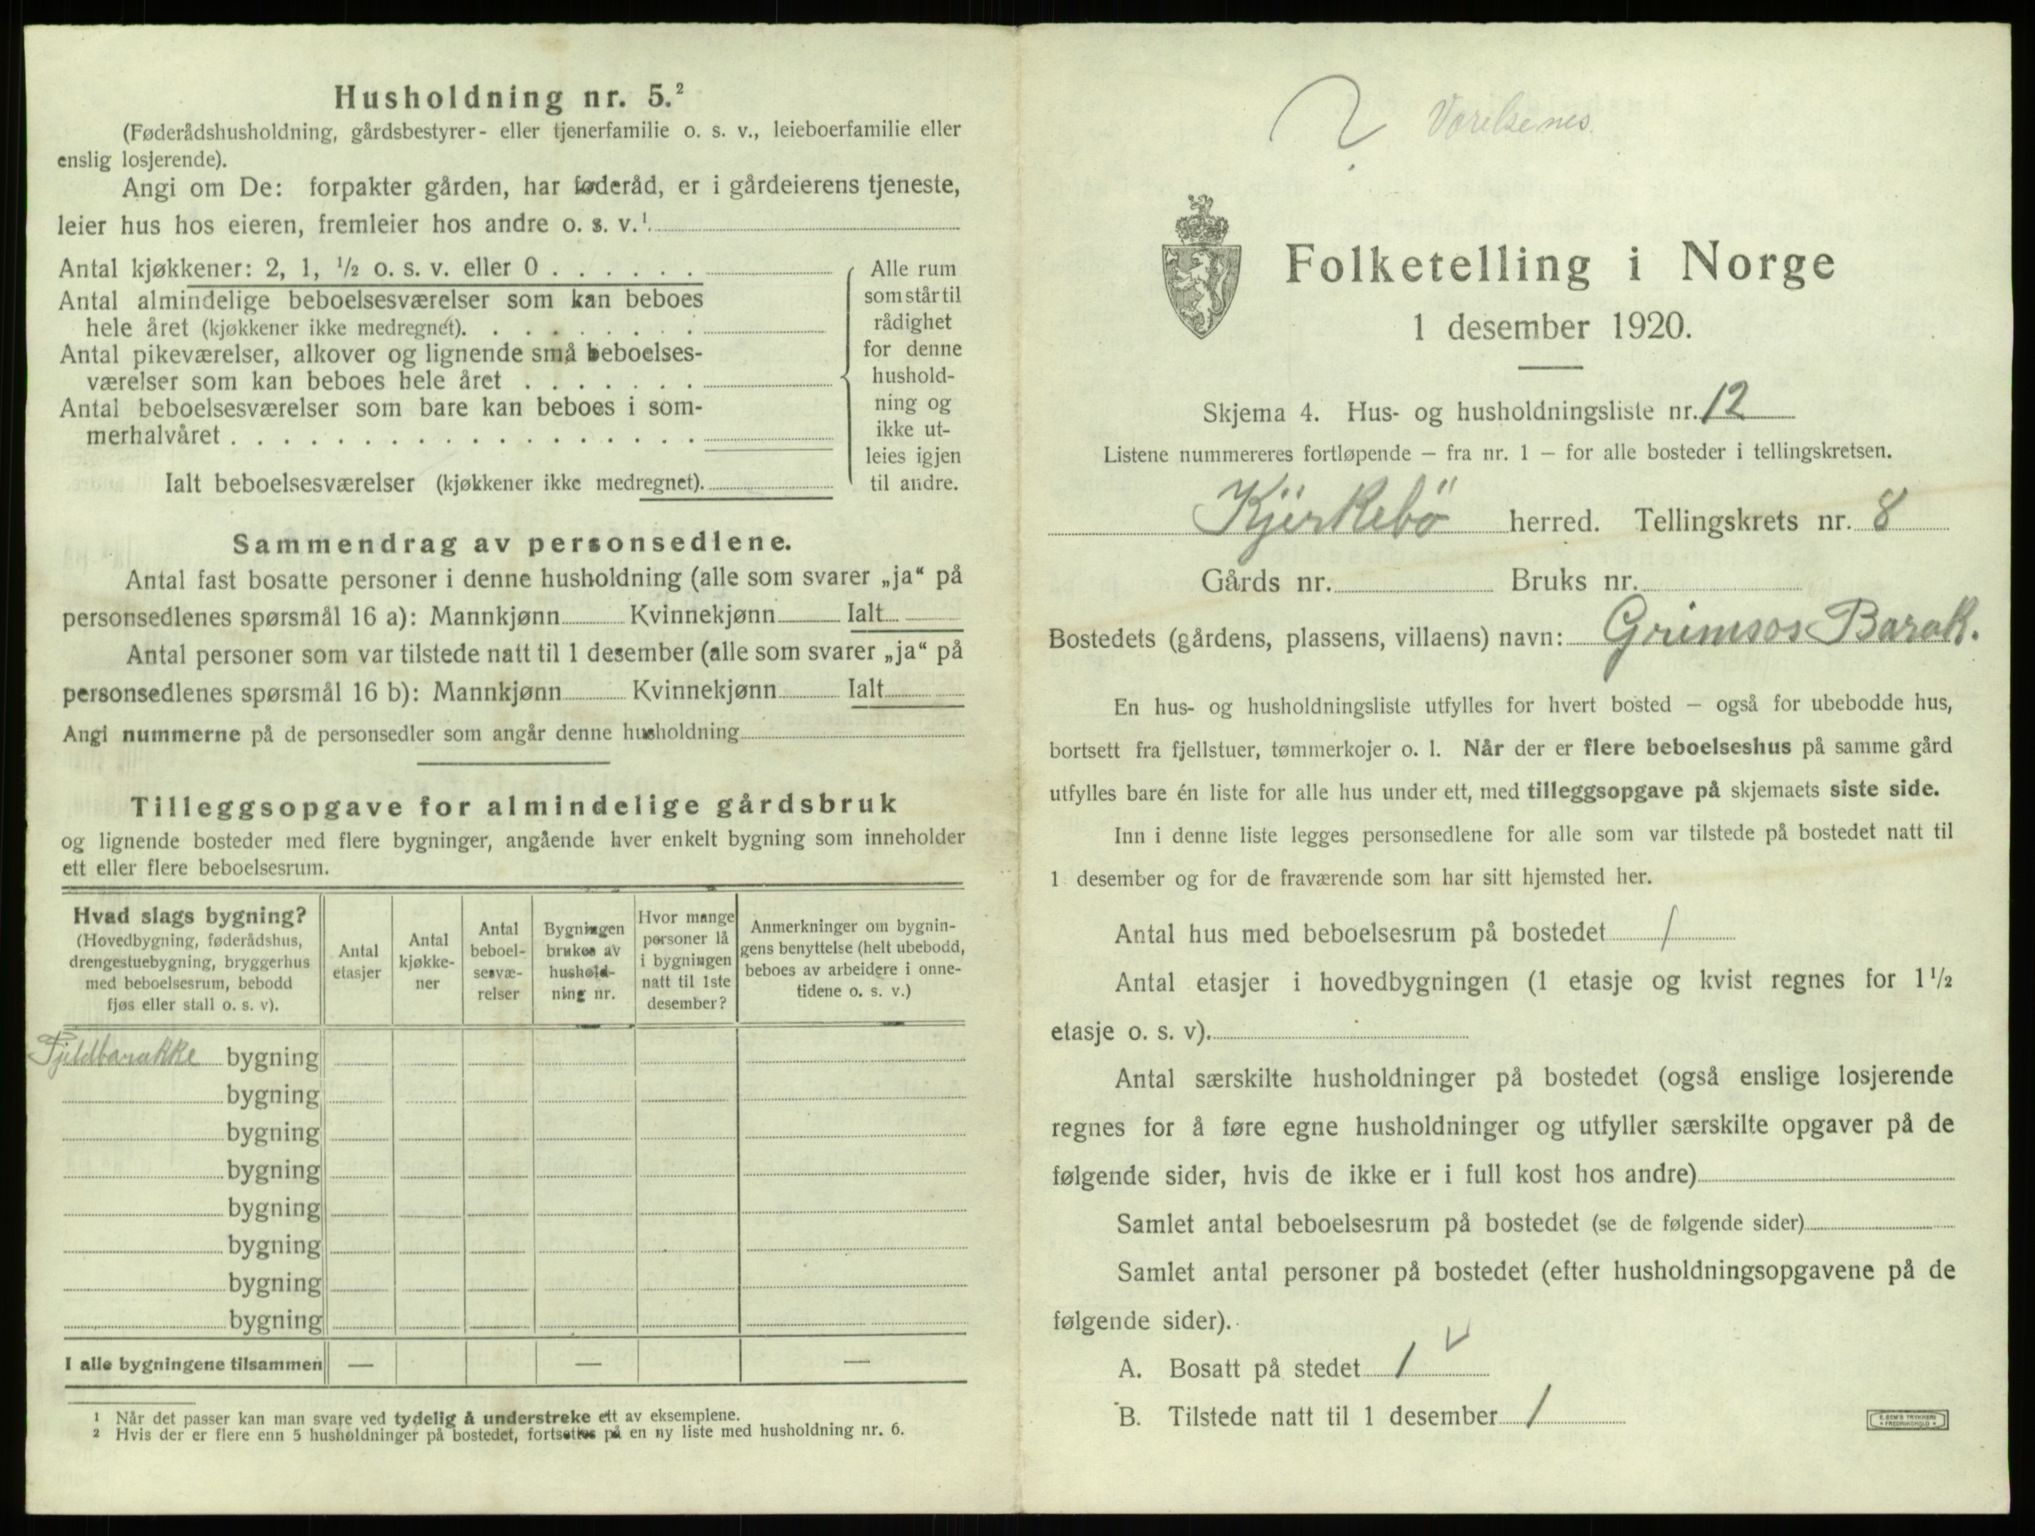 Husholdning nr. 5.²
(Føderådshusholdning, gårdsbestyrer- eller tjenerfamilie o. s. v., leieboerfamilie eller
enslig losjerende).
Angi om De: forpakter gården, har føderåd, er i gårdeierens tjeneste,
leier hus hos eieren, fremleier hos andre o. s. v.¹
Antal kjøkkener: 2, 1, ½ o. s. v. eller 0 . . . . . .
Antal almindelige beboelsesværelser som kan beboes
hele året (kjøkkener ikke medregnet). . . . . . . . .
Antal pikeværelser, alkover og lignende små beboelses-
værelser som kan beboes hele året . . . . . . .
Antal beboelsesværelser som bare kan beboes i som-
merhalvåret . . . . . . . . . . . . . . . . . .
Ialt beboelsesværelser (kjøkkener ikke medregnet).
Alle rum
som står til
rådighet
for denne
hushold-
ning og
ikke ut-
leies igjen
til andre.
Sammendrag av personsedlene.
Antal fast bosatte personer i denne husholdning (alle som svarer „ja“ på
personsedlenes spørsmål 16 a): Mannkjønn Kvinnekjønn Ialt
Antal personer som var tilstede natt til 1 desember (alle som svarer „ja“ på
personsedlenes spørsmål 16 b): Mannkjønn Kvinnekjønn Ialt
Angi nummerne på de personsedler som angår denne husholdning
Tilleggsopgave for almindelige gårdsbruk
og lignende bosteder med flere bygninger, angående hver enkelt bygning som inneholder
ett eller flere beboelsesrum.
Hvad slags bygning?
(Hovedbygning, føderådshus,
drengestuebygning, bryggerhus
med beboelsesrum, bebodd
fjøs eller stall o. s. v).
Antal
etasjer
Antal
kjøkke-
ner
Antal
beboel-
sesvæ-
relser
Bygningen
brukes av
hushold-
ning nr.
Hvor mange
personer lå
i bygningen
natt til 1ste
desember?
Anmerkninger om bygnin-
gens benyttelse (helt ubebodd,
beboes av arbeidere i onne-
tidene o. s. v.)
Fjeldbarakke bygning
bygning
bygning
bygning
bygning
bygning
bygning
bygning
I alle bygningene tilsammen — — —
¹ Når det passer kan man svare ved tydelig å understreke ett av eksemplene.
² Hvis der er flere enn 5 husholdninger på bostedet, fortsettes på en ny liste med husholdning nr. 6.
?
Folketelling i Norge
1 desember 1920.
Skjema 4. Hus- og husholdningsliste nr. 12
Listene nummereres fortløpende — fra nr. 1 — for alle bosteder i tellingskretsen.
Kjirkebö herred. Tellingskrets nr. 8
Gårds nr. Bruks nr.
Bostedets (gårdens, plassens, villaens) navn: Grimsos Barak.
En hus- og husholdningsliste utfylles for hvert bosted — også for ubebodde hus,
bortsett fra fjellstuer, tømmerkojer o. l. Når der er flere beboelseshus på samme gård
utfylles bare én liste for alle hus under ett, med tilleggsopgave på skjemaets siste side.
Inn i denne liste legges personsedlene for alle som var tilstede på bostedet natt til
1 desember og for de fraværende som har sitt hjemsted her.
Antal hus med beboelsesrum på bostedet 1
Antal etasjer i hovedbygningen (1 etasje og kvist regnes for 1½
etasje o. s. v).
Antal særskilte husholdninger på bostedet (også enslige losjerende
regnes for å føre egne husholdninger og utfyller særskilte opgaver på de
følgende sider, hvis de ikke er i full kost hos andre)
Samlet antal beboelsesrum på bostedet (se de følgende sider)
Samlet antal personer på bostedet (efter husholdningsopgavene på de
følgende sider).
A. Bosatt på stedet 1 ✓
B. Tilstede natt til 1 desember 1